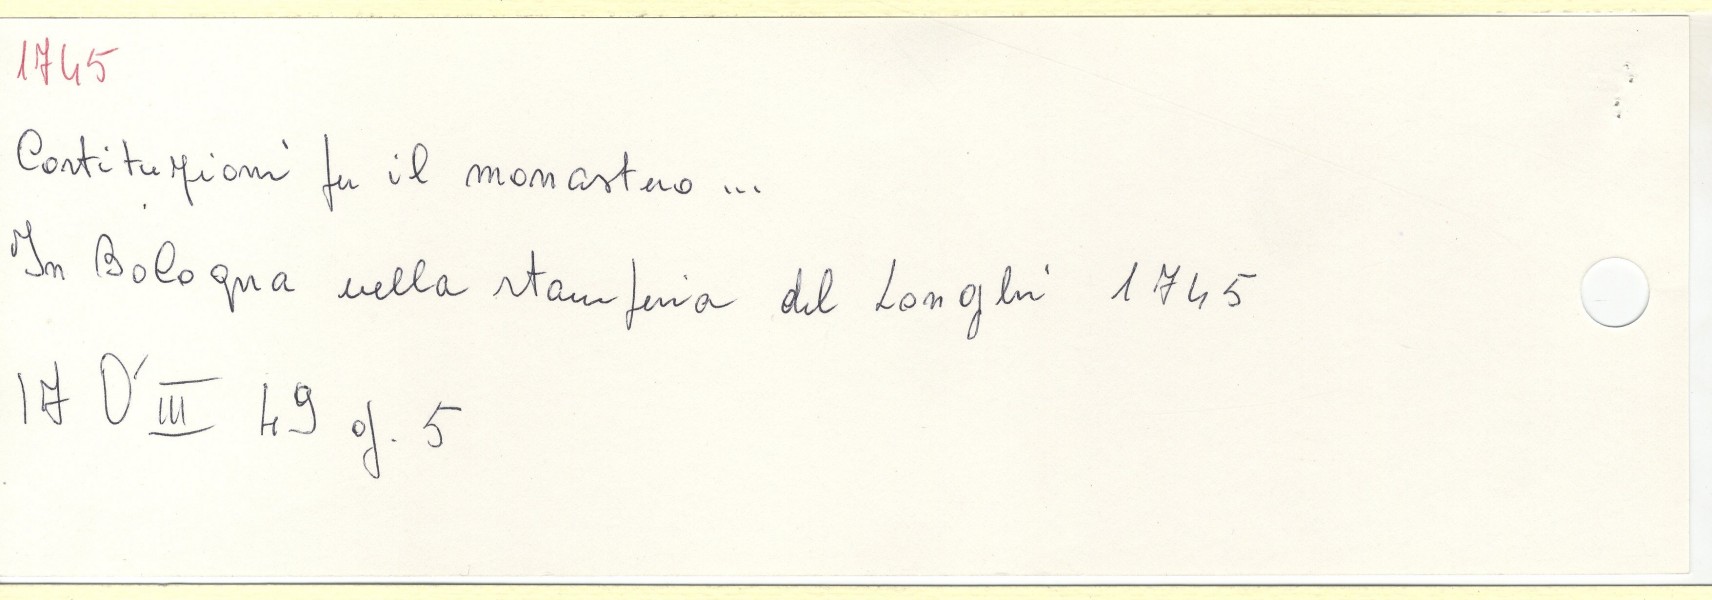 1745
Costituzioni per il monastero ...
In Bologna nella stamperia del Longhi 1745
17 O' III 49 op. 5